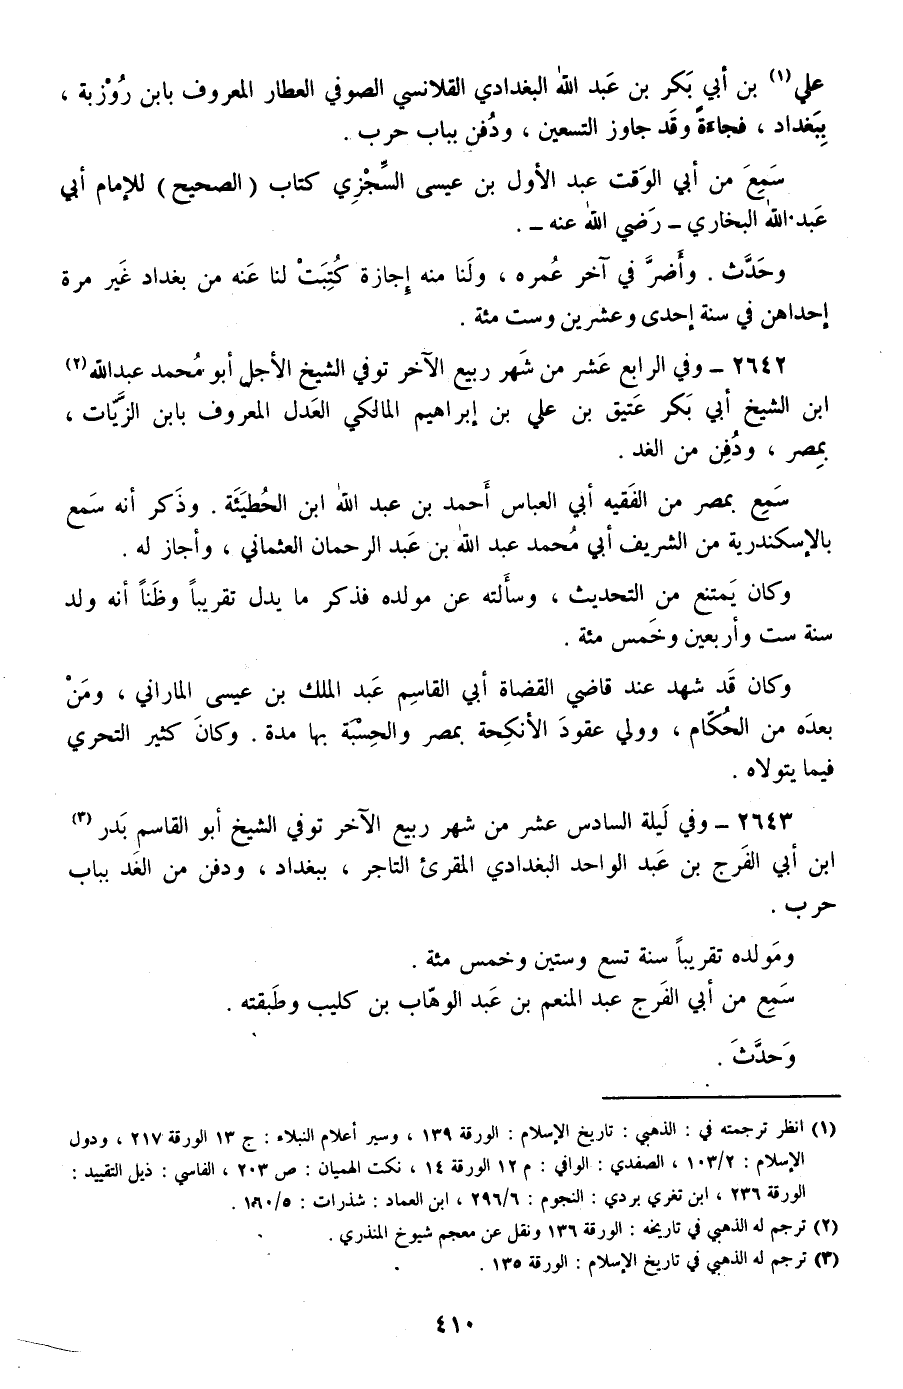 علي(١) بن أبي بَكر بن عَبد الله البغدادي القلانسي الصوفي العطار المعروف بابن رُوْزبة ،
بِبَغداد ، فجاءةً وقَد جاوز التسعين ، ودُفن بباب حرب .
سَمِعَ من أبي الوَقت عبد الأول بن عيسى السِّجْزي كتاب ( الصحيح ) للإمام أبي
عَبد الله البخاري ــ رَضي الله عنه ــ .
وحَدَّث . وأَضرَّ في آخر عُمره ، ولَنا منه إِجازة كُتِبَتْ لنا عَنه من بغداد غَير مرة
إحداهن في سنة إحدى وعشرين وست مئة .
٢٦٤٢ ــ وفي الرابع عَشر من شَهر ربيع الآخر توفي الشيخ الأجل أبو محمد عبدالله(٢)
ابن الشيخ أبي بَكر عَتيق بن علي بن إبراهيم المالكي العَدل المعروف بابن الزَّيّات ،
بِمصر ، ودُفِن من الغد .
سَمِع بمصر من الفَقيه أبي العباس أَحمد بن عبد الله ابن الحُطَيئَة . وذَكر أنه سَمع
بالإسكندرية من الشريف أبي مُحمد عبد الله بن عَبد الرحمان العثماني ، وأجاز له .
وكان يَمتنع من التحديث ، وسأَلته عن مولده فذكر ما يدل تقريباً وظَناً أنه ولد
سنة ست وأربعين وخَمس مئة .
وكان قَد شهد عند قاضي القضاة أبي القاسِم عَبد الملك بن عيسى الماراني ، ومَنْ
بعدَه من الحُكّام ، وولي عقودَ الأنكِحة بمصر والحِسْبَة بها مدة . وكانَ كثير التحري
فيما يتولاه .
٢٦٤٣ ــ وفي لَيلة السادس عشر من شهر ربيع الآخر توفي الشيخ أبو القاسم بَدر (٣)
ابن أبي الفَرج بن عَبد الواحد البغدادي المقرئ التاجر ، ببغداد ، ودفن من الغَد بباب
حرب .
ومَولده تقريباً سنة تسع وستين وخمس مئة .
سَمِع من أبي الفَرج عبد المنعم بن عَبد الوهّاب بن كليب وطَبقته .
وَحدَّثَ .
(١) انظر ترجمته في : الذهبي : تاريخ الإسلام : الورقة ١٣٩ ، وسير أعلام النبلاء : ج ١٣ الورقة ٢١٧ ، ودول
الإسلام : ١٠٣/٢ ، الصفدي : الوافي : م ١٢ الورقة ١٤ ، نكت الهميان : ص ٢٠٣ ، الفاسي : ذيل التقييد :
الورقة ٢٣٦ ، ابن تغري بردي : النجوم : ٢٩٦/٦ ، ابن العماد : شذرات : ١٦٠/٥ .
(٢) ترجم له الذهبي في تاريخه : الورقة ١٣٦ ونقل عن معجم شيوخ المنذري .
(٣) ترجم له الذهبي في تاريخ الإسلام : الورقة ١٣٥ .
٤١٠